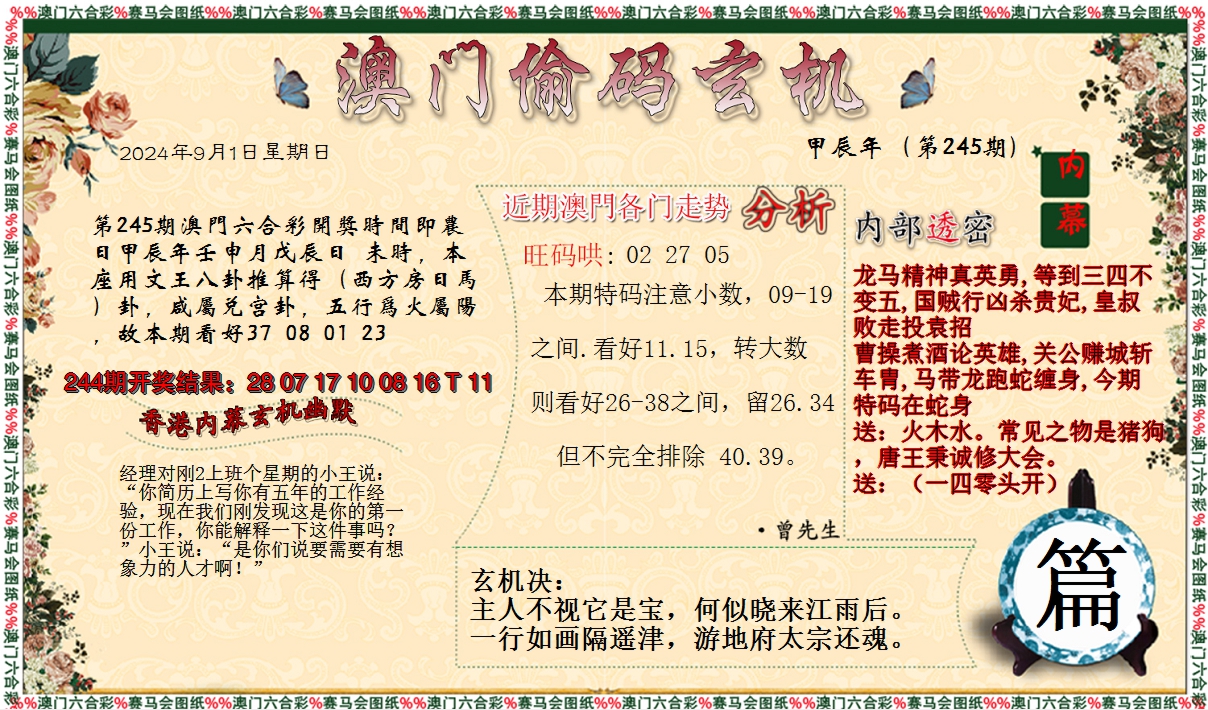 %%澳门六合彩%赛马会图纸%%澳门六合彩%赛马会图纸%%澳门六合彩%赛马会图纸%%澳门六合彩%赛马会图纸%%澳门六合彩%赛马会图纸%%澳门六合彩%赛马会图纸%%
澳门偷码玄机
2024年9月1日星期日
甲辰年（第245期）
内幕
第245期澳門六合彩開獎時間即農
日甲辰年壬申月戊辰日 未時，本
座用文王八卦推算得（西方房日馬
）卦，咸屬兑宫卦，五行爲火屬陽
，故本期看好37 08 01 23
244期开奖结果：28 07 17 10 08 16 T 11
香港内幕玄机幽默
经理对刚2上班个星期的小王说：
“你简历上写你有五年的工作经
验，现在我们刚发现这是你的第一
份工作，你能解释一下这件事吗？
”小王说：“是你们说要需要有想
象力的人才啊！”
近期澳門各门走势 分析
旺码哄: 02 27 05
本期特码注意小数，09-19
之间.看好11.15，转大数
则看好26-38之间，留26.34
但不完全排除 40.39。
·曾先生
内部透密
龙马精神真英勇,等到三四不
变五,国贼行凶杀贵妃,皇叔
败走投袁招
曹操煮酒论英雄,关公赚城斩
车胄,马带龙跑蛇缠身,今期
特码在蛇身
送：火木水。常见之物是猪狗
，唐王秉诚修大会。
送：（一四零头开）
玄机决：
主人不视它是宝，何似晓来江雨后。
一行如画隔遥津，游地府太宗还魂。
篇
%%澳门六合彩%赛马会图纸%%澳门六合彩%赛马会图纸%%澳门六合彩%赛马会图纸%%澳门六合彩%赛马会图纸%%澳门六合彩%赛马会图纸%%澳门六合彩%赛马会图纸%%